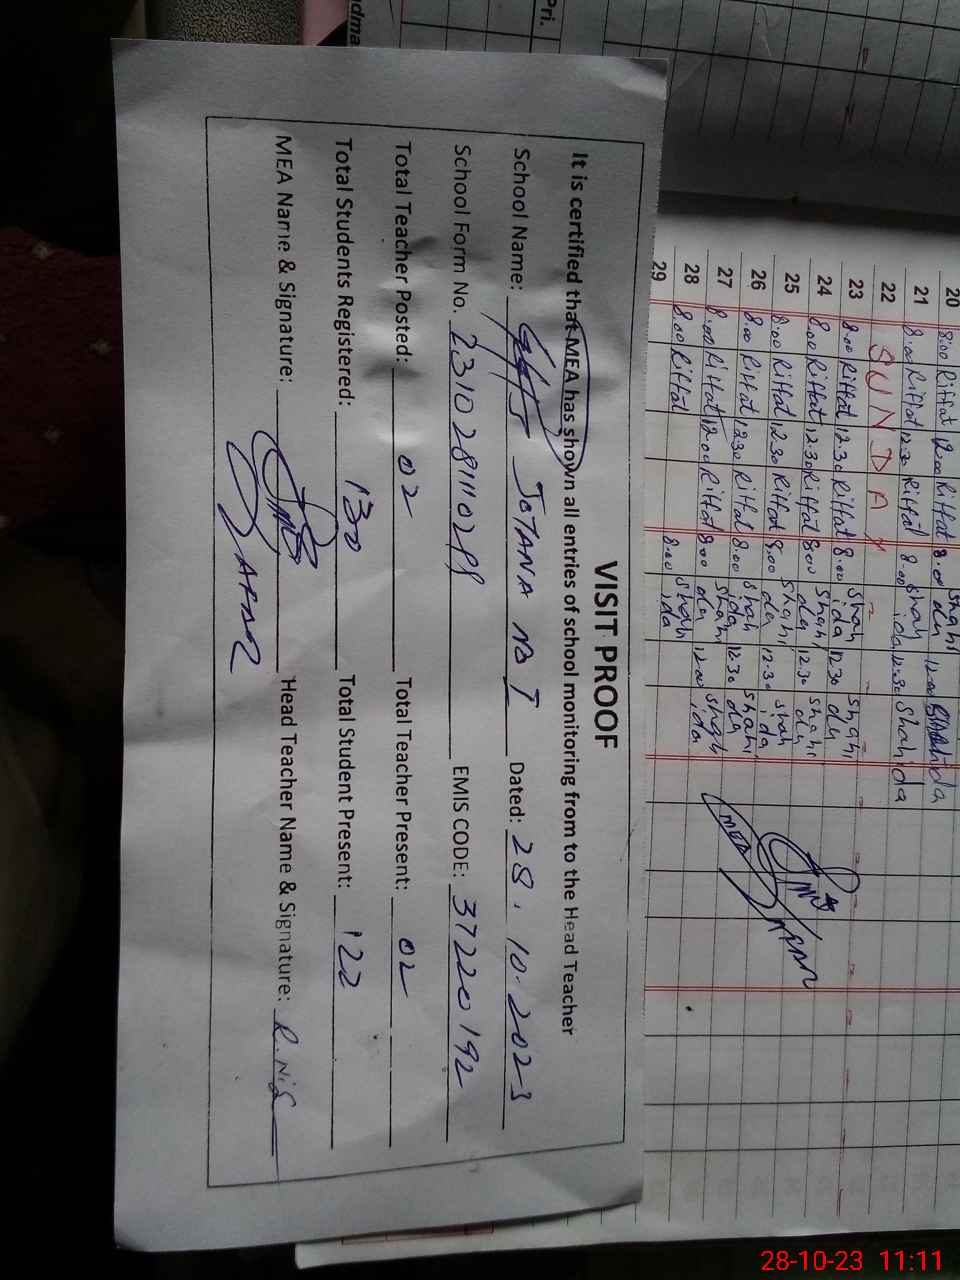 VISIT PROOF
It is certified that MEA has shown all entries of school monitoring from to the Head Teacher
School Name: JOTANA NO 1 Dated: 28.10.2023
School Form No. EMIS CODE: 37220192
Total Teacher Posted: 02 Total Teracher Present: 02
Total Students Registered: 130 Total Student Present: 122
MEA Name & Signature: Head Teacher Name & Signature:
Pri.
20 8:00 Riffat 12:00 Riffat 8:00
21 8:00 Riffat 12:30 Riffat 8:00 Shahida 12:30 Shahida
22 SUNDAY
23 8:00 Riffat 12:30 Riffat 8:00 Shahida 12:30 Shahida
24 8:00 Riffat 12:30 Riffat 8:00 Shahida 12:30 Shahida
25 8:00 Riffat 12:30 Riffat 8:00 Shahida 12:30 Shahida
26 8:00 Riffat 12:30 Riffat 8:00 Shahida 12:30 Shahida
27 8:00 Riffat 12:00 Riffat 8:00 Shahida 12:00 Shahida
28 8:00 Riffat 8:00 Shahida
29
28-10-23 11:11